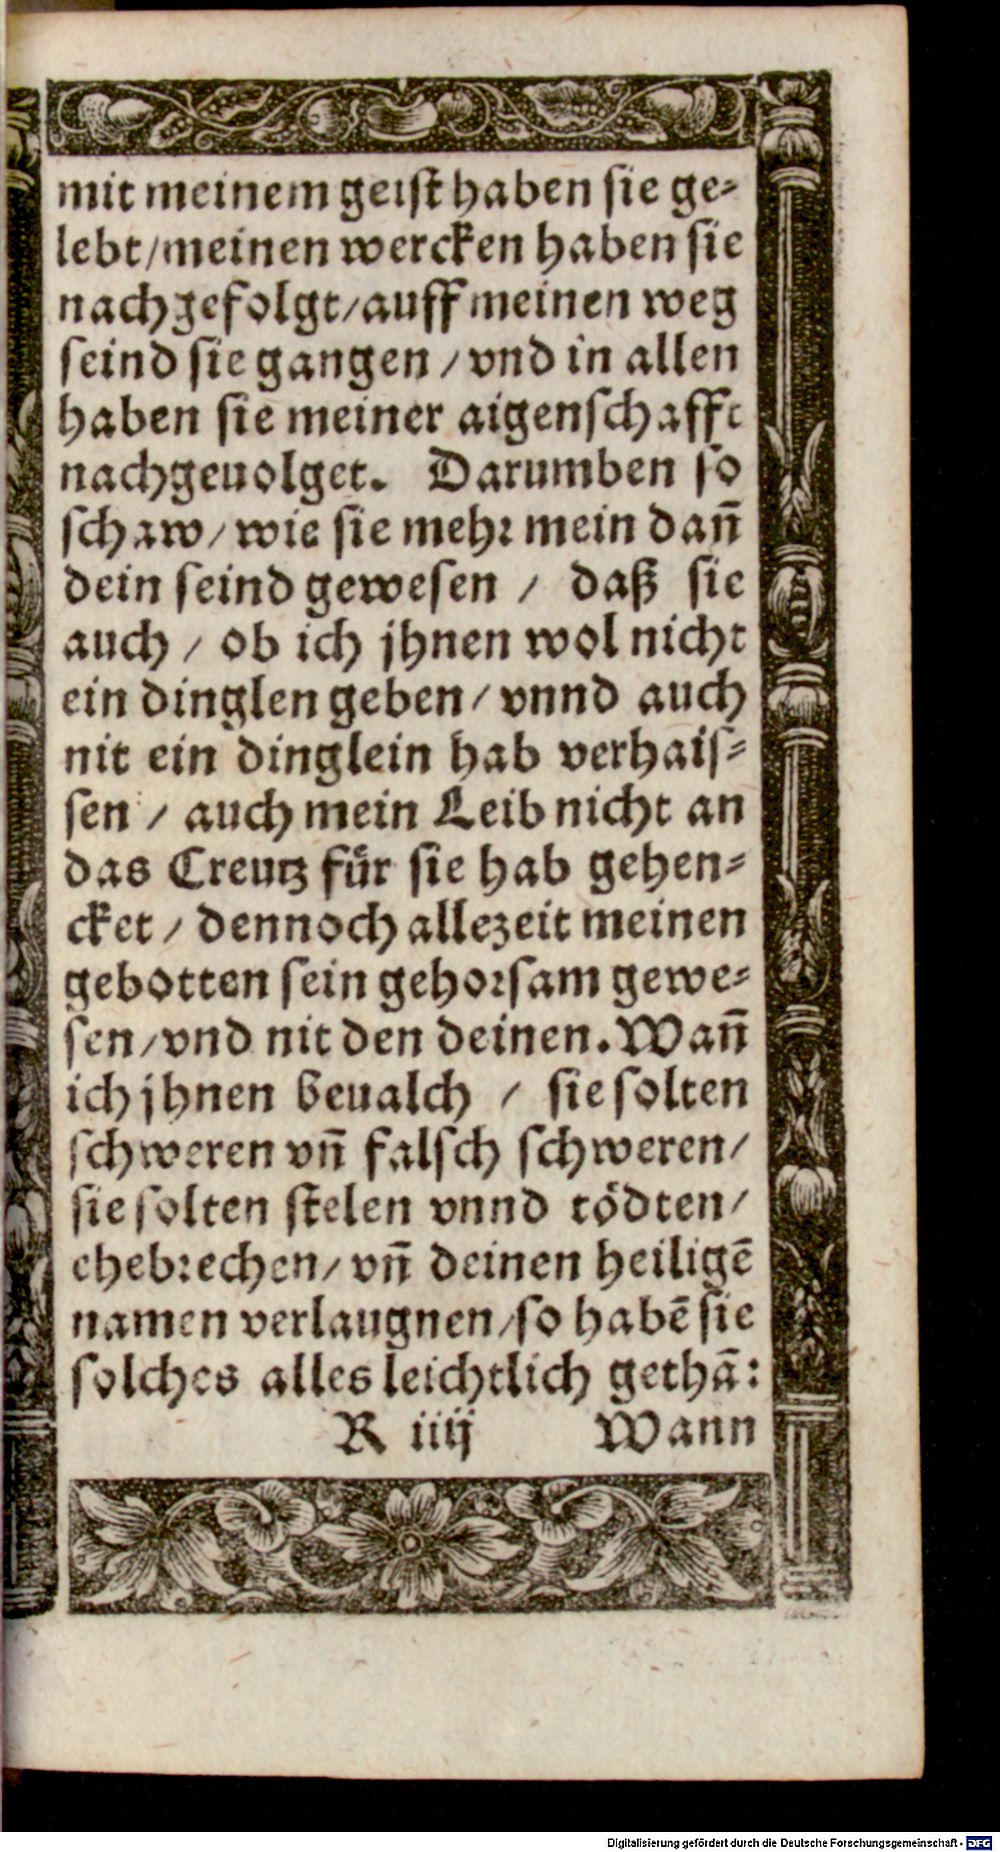 mit meinem geist haben sie ge-
lebt/meinen wercken haben sie
nachgefolgt/auff meinen weg
seind sie gangen / vnd in allen
haben sie meiner aigenschafft
nachgeuolget. Darumben so
schaw/wie sie mehr mein dañ
dein seind gewesen / daß sie
auch / ob ich jhnen wol nicht
ein dinglen geben/ vnnd auch
nit ein dinglein hab verhais-
sen / auch mein Leib nicht an
das Creutz für sie hab gehen-
cket / dennoch allezeit meinen
gebotten sein gehorsam gewe-
sen/vnd nit den deinen. Wañ
ich jhnen beualch / sie solten
schweren vñ falsch schweren/
sie solten stelen vnnd tödten/
ehebrechen/ vñ deinen heiligē
namen verlaugnen/so habē sie
solches alles leichtlich gethā:
R iiij Wann
Digitalisierung gefördert durch die Deutsche Forschungsgemeinschaft - DFG